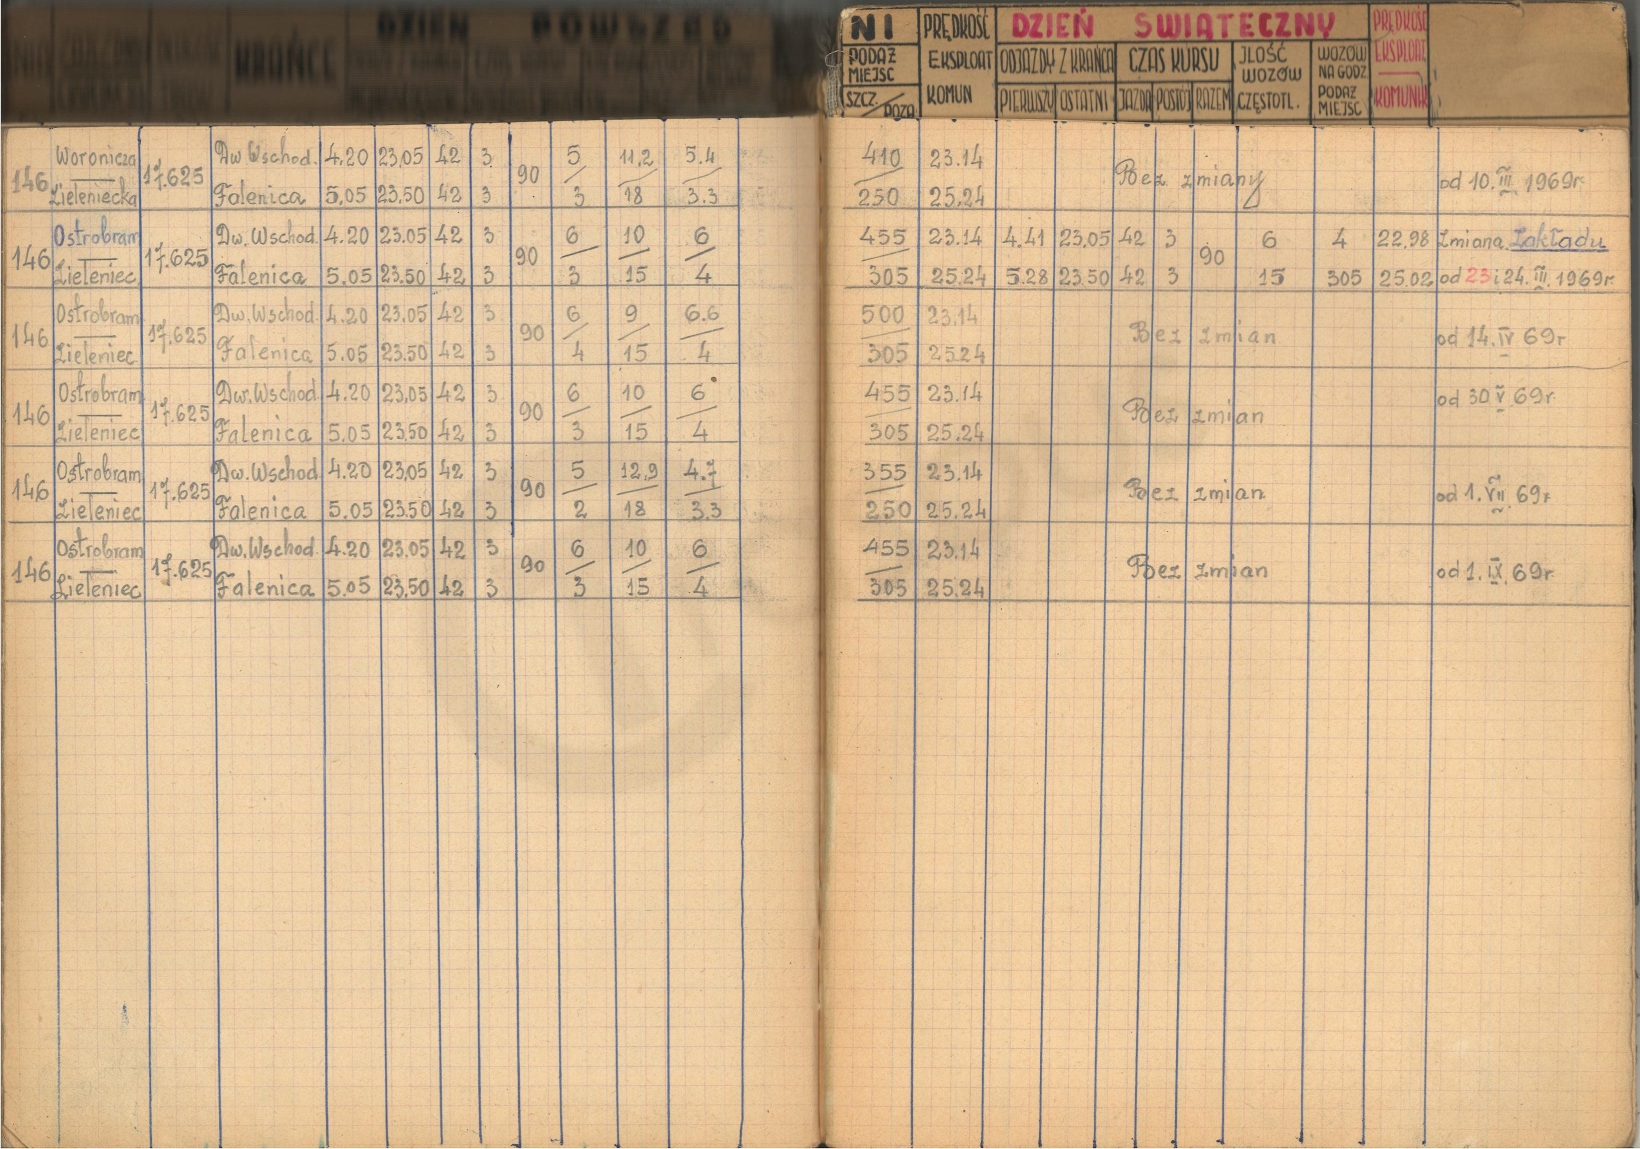 DZIEŃ POWSZED NI PRĘDKOŚĆ DZIEŃ SWIĄTECZNY PRĘDKOŚĆ
KRAŃCE PODAŻ MIEJSC EKSPLOAT ODJAZDY Z KRAŃCA CZAS KURSU JLOŚĆ WOZÓW WOZÓW NA GODZ EKSPLOAT.
SZCZ. / POZA KOMUN PIERWSZY OSTATNI JAZDA POSTÓJ RAZEM CZĘSTOTL. PODAŻ MIEJSC KOMUNIK
146 Woronicza 17.625 Dw. Wschod. 4.20 23,05 42 3 90 5 11,2 5.4 410 23.14 Bez zmiany od 10.III.1969r.
Zieleniecka Falenica 5,05 23,50 42 3 3 18 3.3 250 25.24
146 Ostrobram 17.625 Dw. Wschod. 4.20 23.05 42 3 90 6 10 6 455 23.14 4.41 23,05 42 3 90 6 4 22.98 Zmiana Zakładu
Zieleniec. Falenica 5.05 23.50 42 3 3 15 4 305 25.24 5.28 23.50 42 3 15 305 25.02 od 23 i 24.III.1969r.
146 Ostrobram 17.625 Dw. Wschod. 4.20 23.05 42 3 90 6 9 6.6 500 23.14 Bez zmian od 14.IV 69r
Zieleniec Falenica 5.05 23.50 42 3 4 15 4 305 25.24
146 Ostrobram 17.625 Dw. Wschod. 4.20 23,05 42 3 90 6 10 6 455 23.14 Bez zmian od 30.V.69r.
Zieleniec Falenica 5.05 23,50 42 3 3 15 4 305 25.24
146 Ostrobram 17.625 Dw. Wschod. 4.20 23,05 42 3 90 5 12,9 4.7 355 23.14 Bez zmian od 1.VII.69r.
Zieleniec Falenica 5.05 23.50 42 3 2 18 3.3 250 25.24
146 Ostrobram 17.625 Dw. Wschod. 4.20 23.05 42 3 90 6 10 6 455 23.14 Bez zmian od 1.IX.69r
Zieleniec Falenica 5.05 23,50 42 3 3 15 4 305 25.24